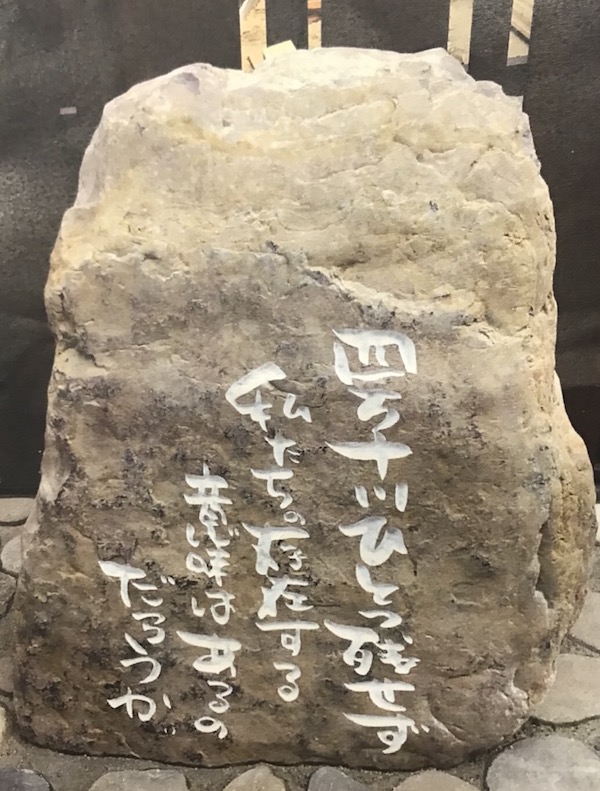 四万十川ひとつ残せず
私たちの存在する
意味はあるの
だろうか。